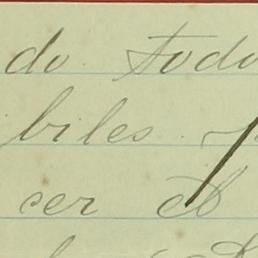 do todo
biles
cer el